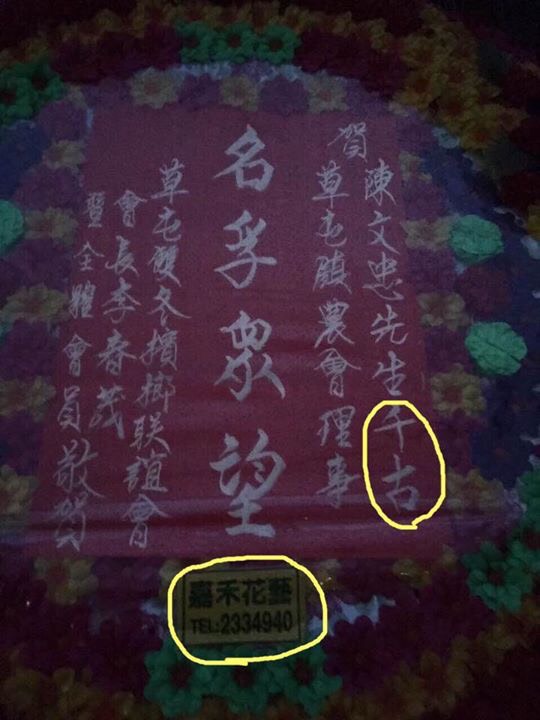 賀
陳文忠先生千古
草屯鎮農會理事
名孚眾望
草屯雙冬檳榔联誼會
會長李春茂
暨全體會員敬賀
嘉禾花藝
TEL:2334940